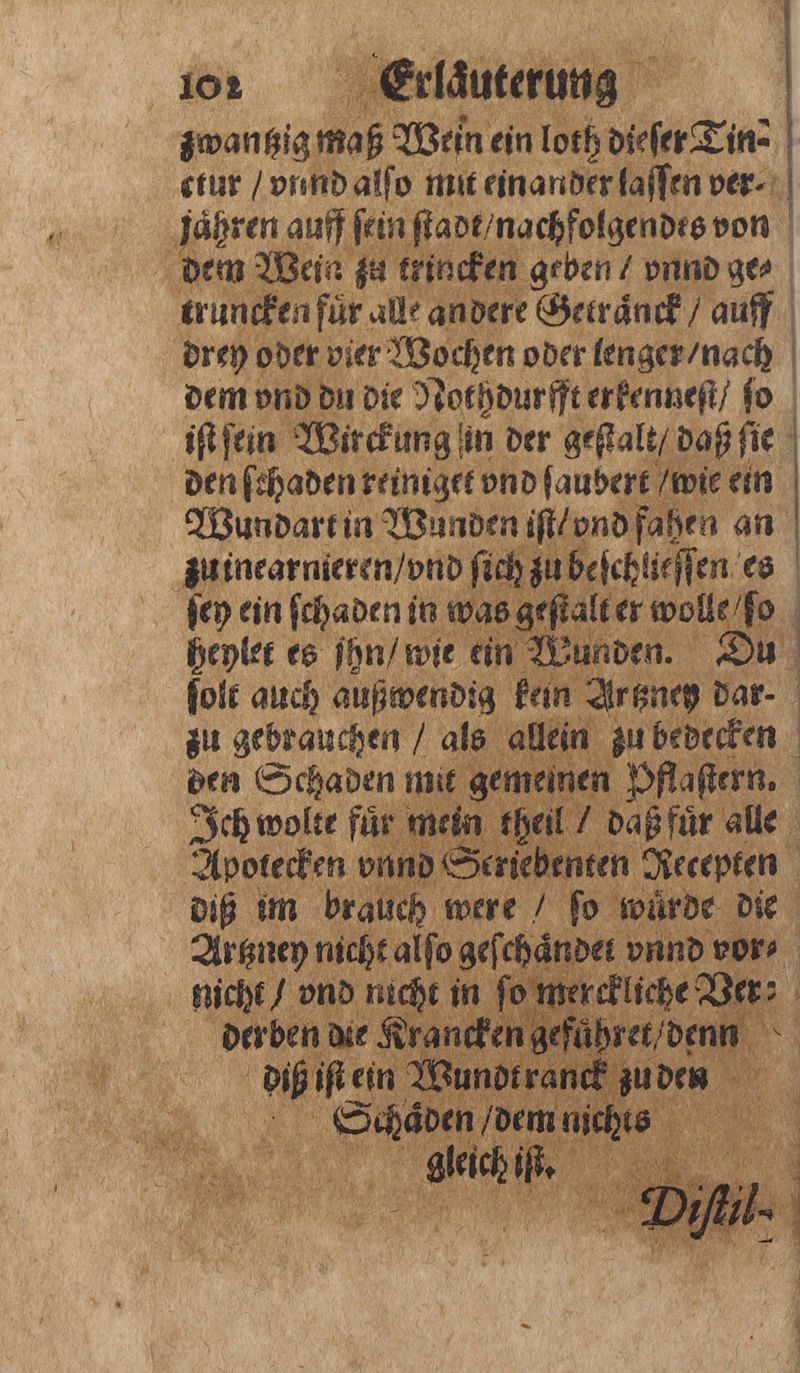 102 Erläuterung
zwantzig maß Wein ein loth dieſer Tin-
ctur / vnnd alſo mit einander laſſen ver-
jähren auff ſein ſtadt / nachfolgendes von
dem Wein zu trincken geben / vnnd ge-
truncken für alle andere Getränck / auff
drey oder vier Wochen oder lenger / nach
dem vnd du die Nothdurfft erkenneſt / ſo
iſt ſein Wirckung in der geſtalt / daß ſie
den ſchaden reiniget vnd ſaubert / wie ein
Wundart in Wunden iſt / vnd fahen an
zu inearnieren / vnd ſich zu beſchlieſſen es
ſey ein ſchaden in was geſtalt er wolle / ſo
heylet es jhn / wie ein Wunden. Du
ſolt auch außwendig kein Artzney dar-
zu gebrauchen / als allein zu bedecken
den Schaden mit gemeinen Pflaſtern.
Ich wolte für mein theil / daß für alle
Apotecken vnnd Scriebenten Recepten
diß im brauch were / ſo würde die
Artzney nicht alſo geſchändet vnnd vor-
nicht / vnd nicht in ſo merckliche Ver-
derben die Krancken geführet / denn
diß iſt ein Wundtranck zu den
Schäden / dem nichts
gleich iſt.
Diſtil-